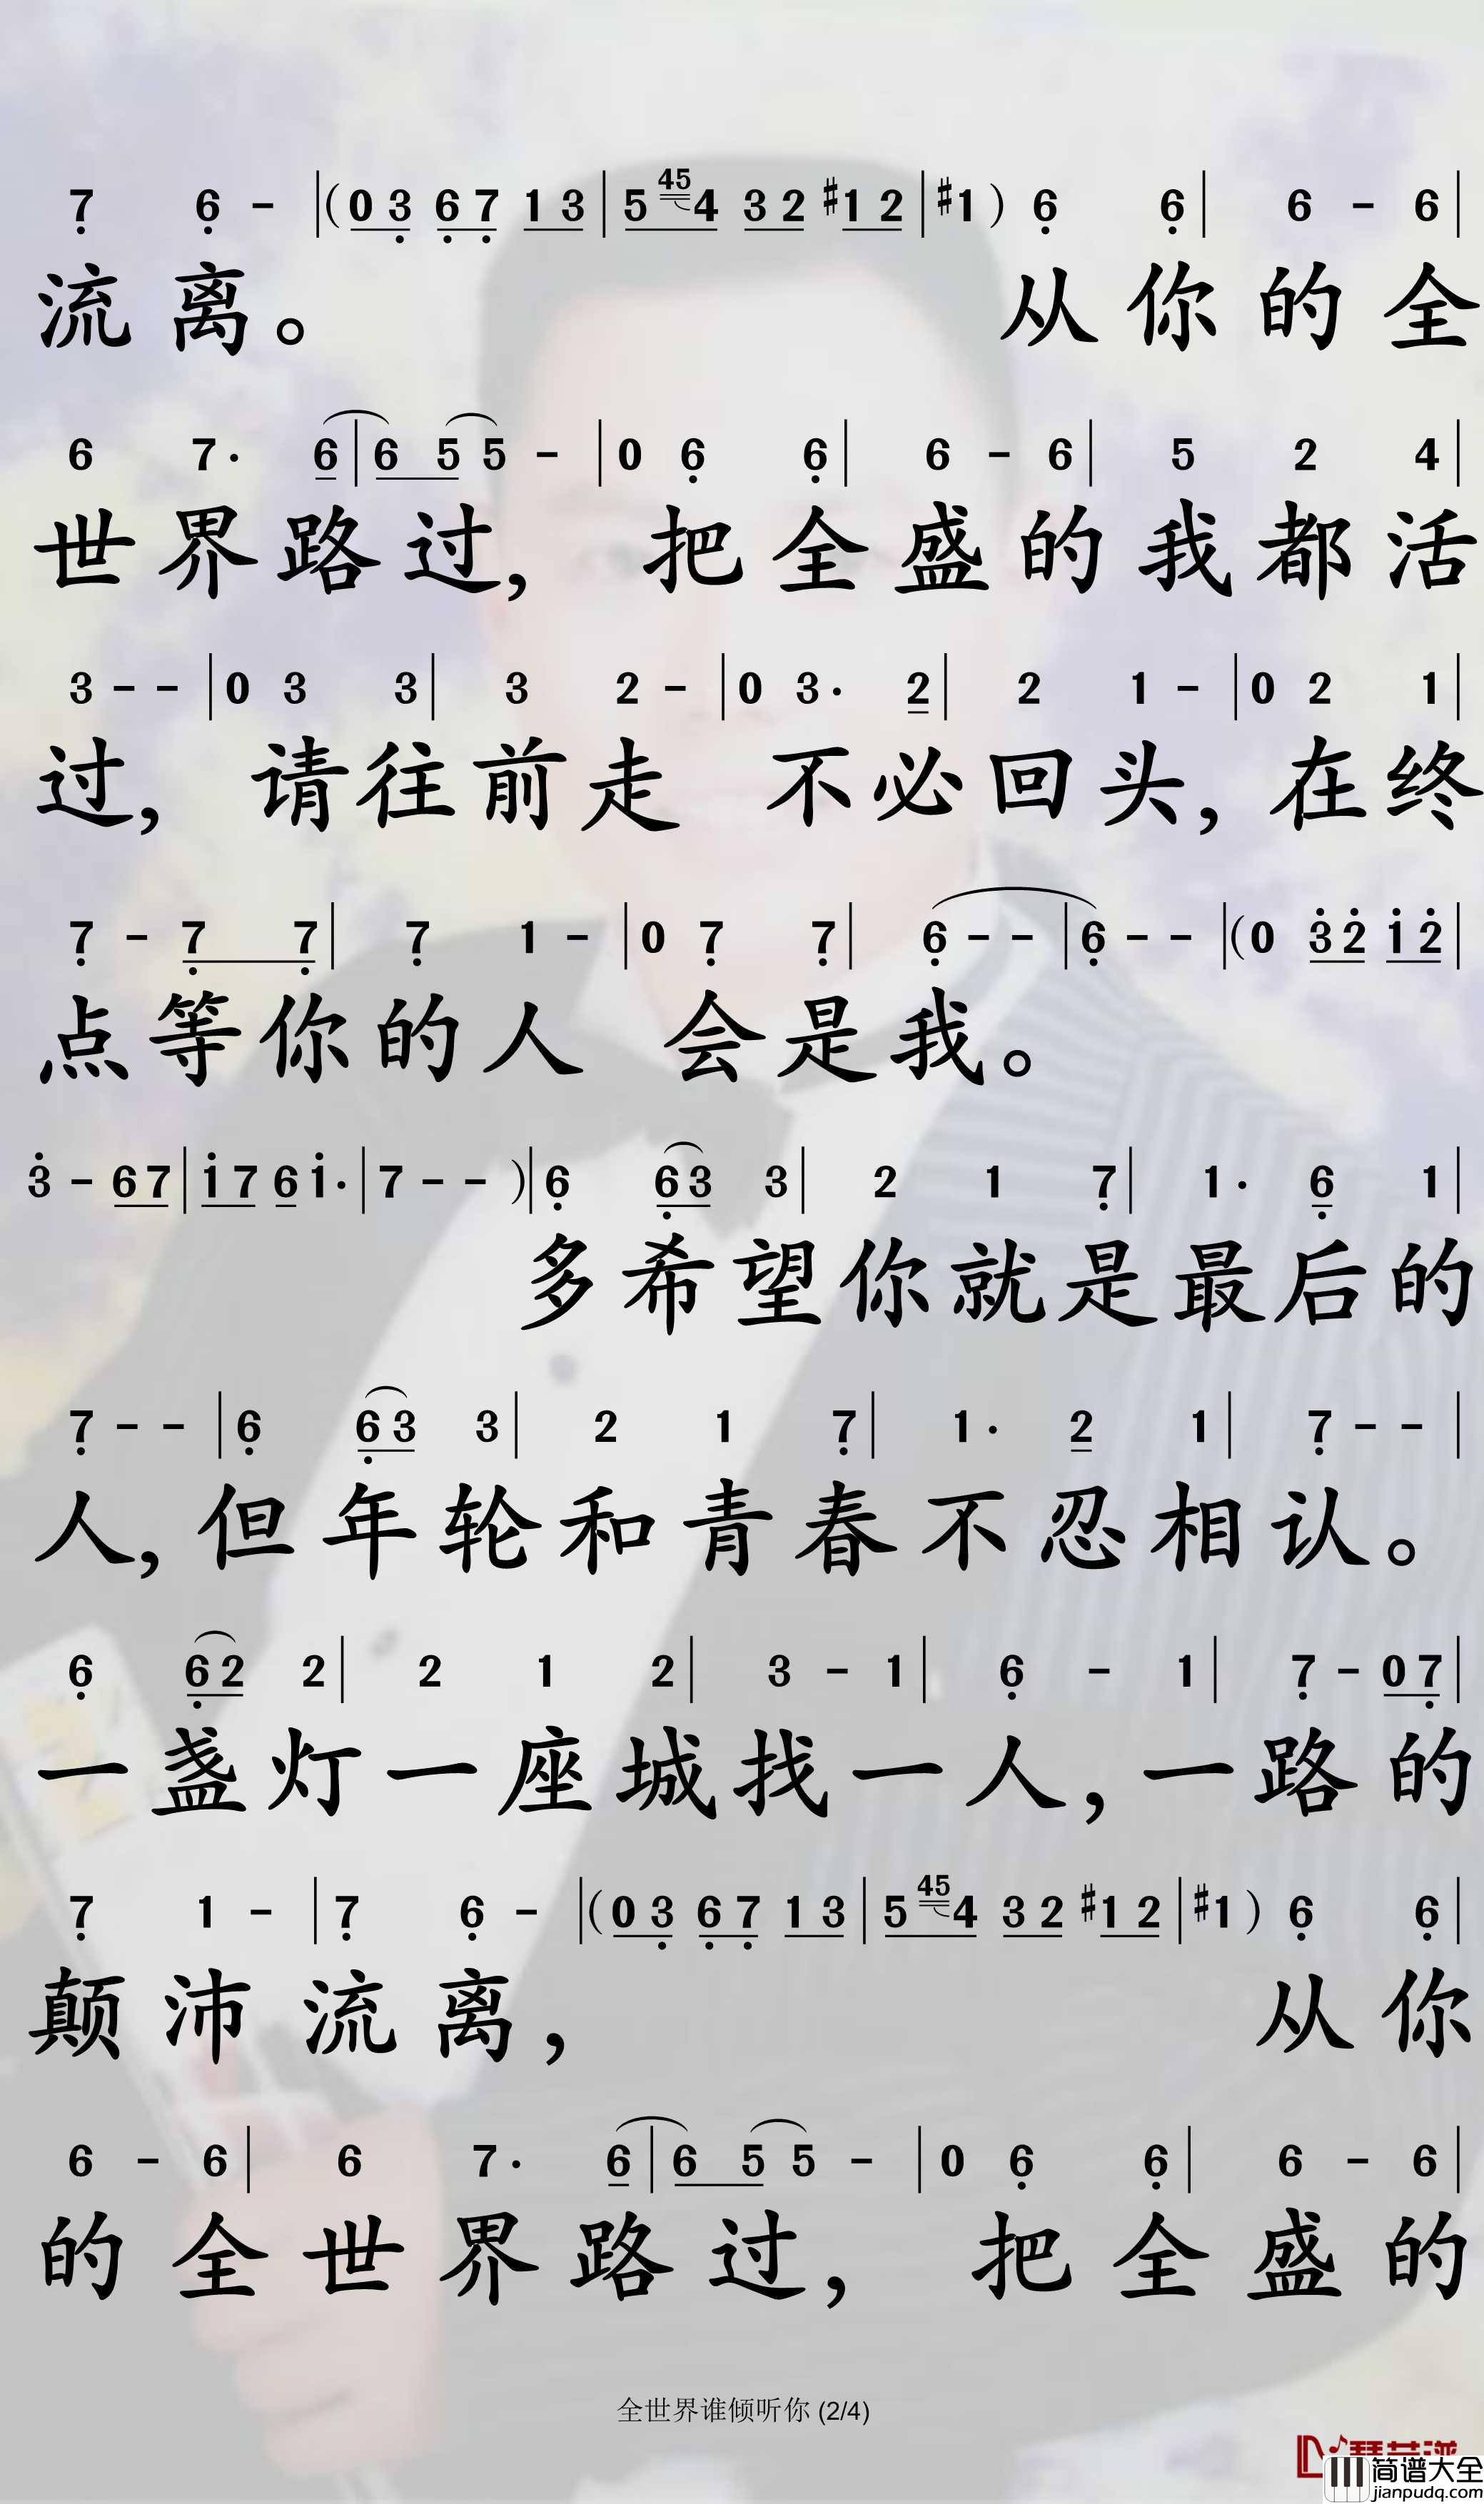 7̣ 6̣ - |(0 3̣ 6̣ 7̣ 1 3 | 5 45 4 3 2 #1 2 | #1 ) 6̣ 6̣ | 6 - 6 |
流 离。 从 你 的 全
6 7· 6 | 6 5 5 - | 0 6̣ 6̣ | 6 - 6 | 5 2 4 |
世 界 路 过, 把 全 盛 的 我 都 活
3 - - | 0 3 3 | 3 2 - | 0 3· 2 | 2 1 - | 0 2 1 |
过, 请 往 前 走 不 必 回 头, 在 终
7̣ - 7̣ 7̣ | 7̣ 1 - | 0 7̣ 7̣ | 6̣ - - | 6̣ - - |(0 3̇ 2̇ 1̇ 2̇ |
点 等 你 的 人 会 是 我。
3̇ - 6 7 | 1̇ 7 6 1̇· | 7 - - )| 6̣ 6̣ 3 3 | 2 1 7̣ | 1· 6̣ 1 |
多 希 望 你 就 是 最 后 的
7̣ - - | 6̣ 6̣ 3 3 | 2 1 7̣ | 1· 2 1 | 7̣ - - |
人, 但 年 轮 和 青 春 不 忍 相 认。
6̣ 6̣ 2 2 | 2 1 2 | 3 - 1 | 6̣ - 1 | 7̣ - 0 7̣ |
一 盏 灯 一 座 城 找 一 人, 一 路 的
7̣ 1 - | 7̣ 6̣ - |(0 3̣ 6̣ 7̣ 1 3 | 5 45 4 3 2 #1 2 | #1 ) 6̣ 6̣ |
颠 沛 流 离, 从 你
6 - 6 | 6 7· 6 | 6 5 5 - | 0 6̣ 6̣ | 6 - 6 |
的 全 世 界 路 过, 把 全 盛 的
全世界谁倾听你 (2/4)
简谱大全
jianpudq.com